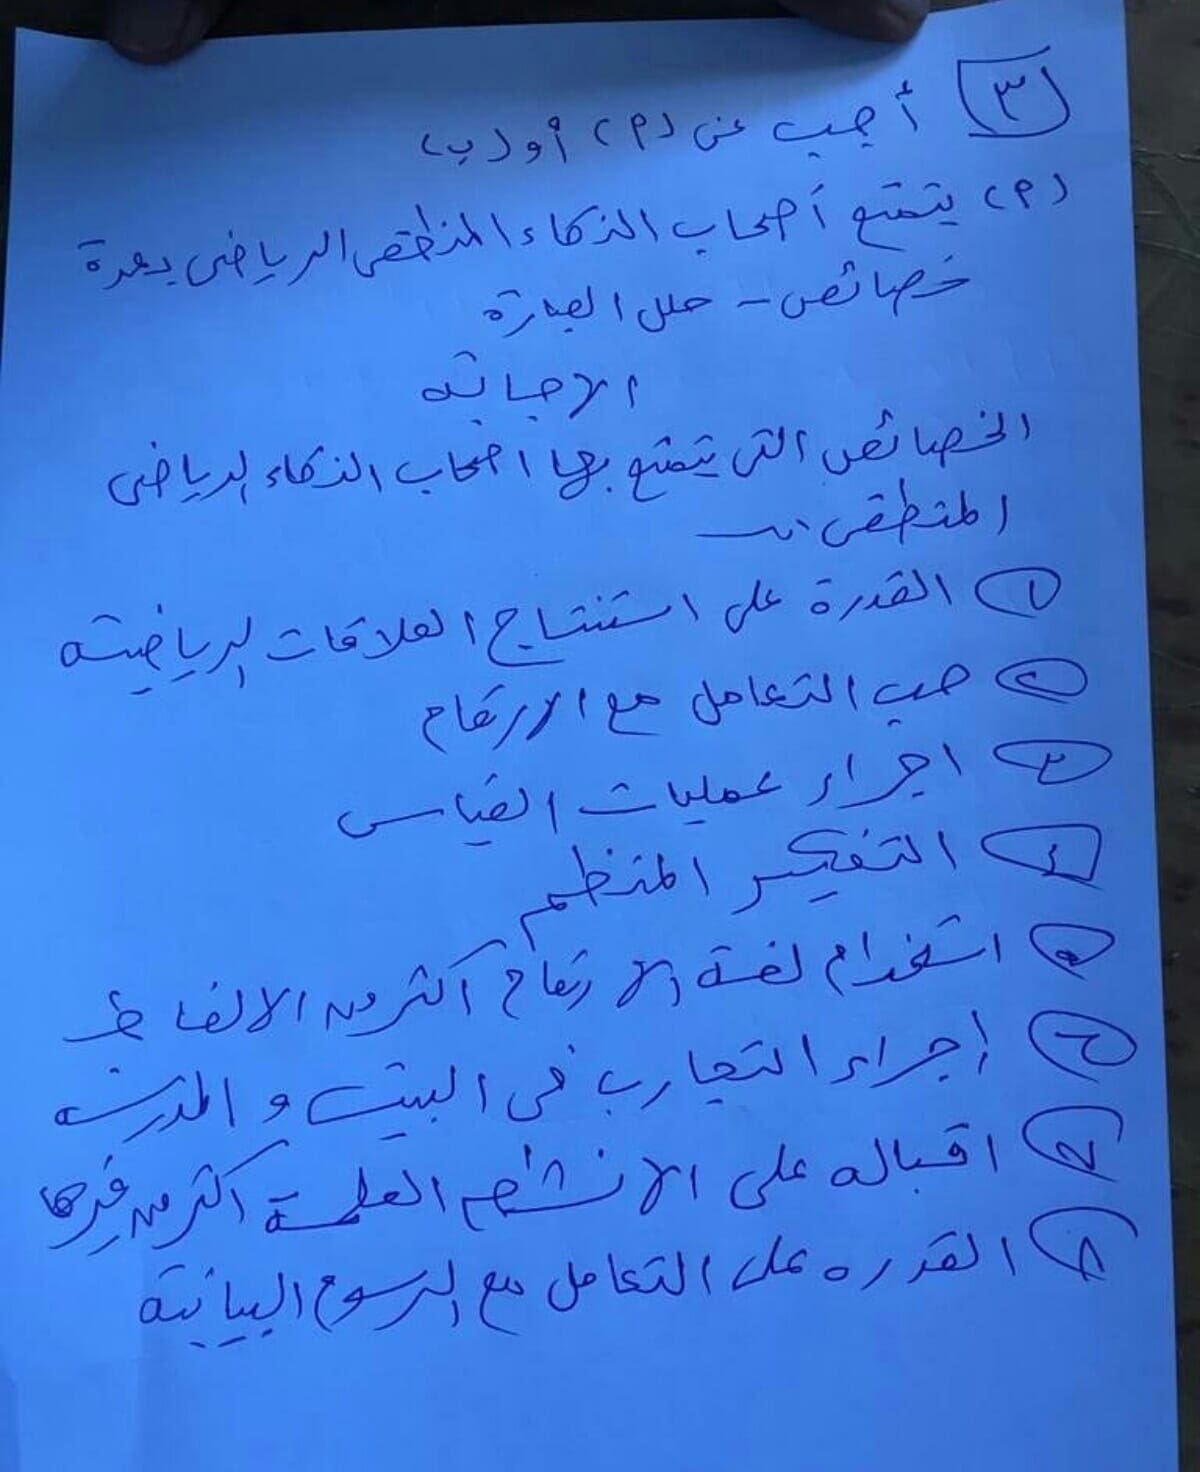 ٣ أجب عن (م) أو (ب)
(م) يتمتع أصحاب الذكاء المنطقى الرياضى بعدة
خصائص - حلل العبارة
الاجابة
الخصائص التى يتمتع بها اصحاب الذكاء الرياضى
المنطقى :-
١ القدرة على استنتاج العلاقات الرياضية
٢ حب التعامل مع الارقام
٣ اجراء عمليات القياس
٤ التفكير المنظم
٥ استخدام لغة الارقام اكثر من الالفاظ
٦ إجراء التجارب فى البيت و المدرسة
٧ اقباله على الانشطه العلمية اكثر من غيرها
٨ القدره على التعامل مع الرسوم البيانية